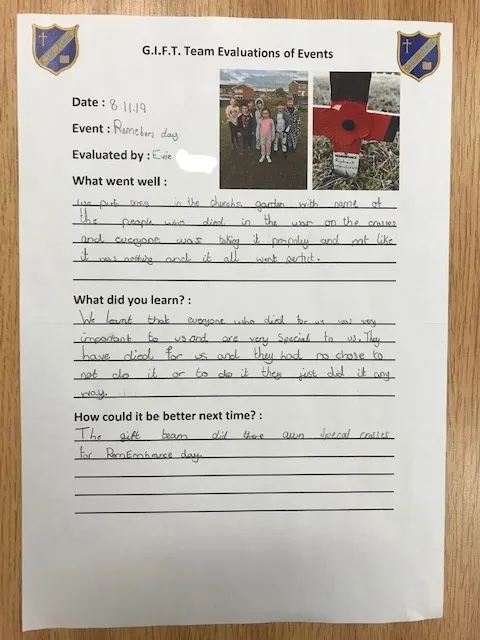 G.I.F.T. Team Evaluations of Events
Date : 8.11.19
Event : Rememebers day
Evaluated by : Evie
What went well :
We put in the churchs garden with name of
the people who died in the war on the crosses
and everyone was taking it properley and not like
it was nothing and it all went perfect.
What did you learn? :
We learnt that everyone who died for us was very
important to us and are very special to us. They
have died for us and they had no chose to
not do it or to do it they just did it any
way.
How could it be better next time? :
The gift team did there own special crosses
for RemEmbrance day.